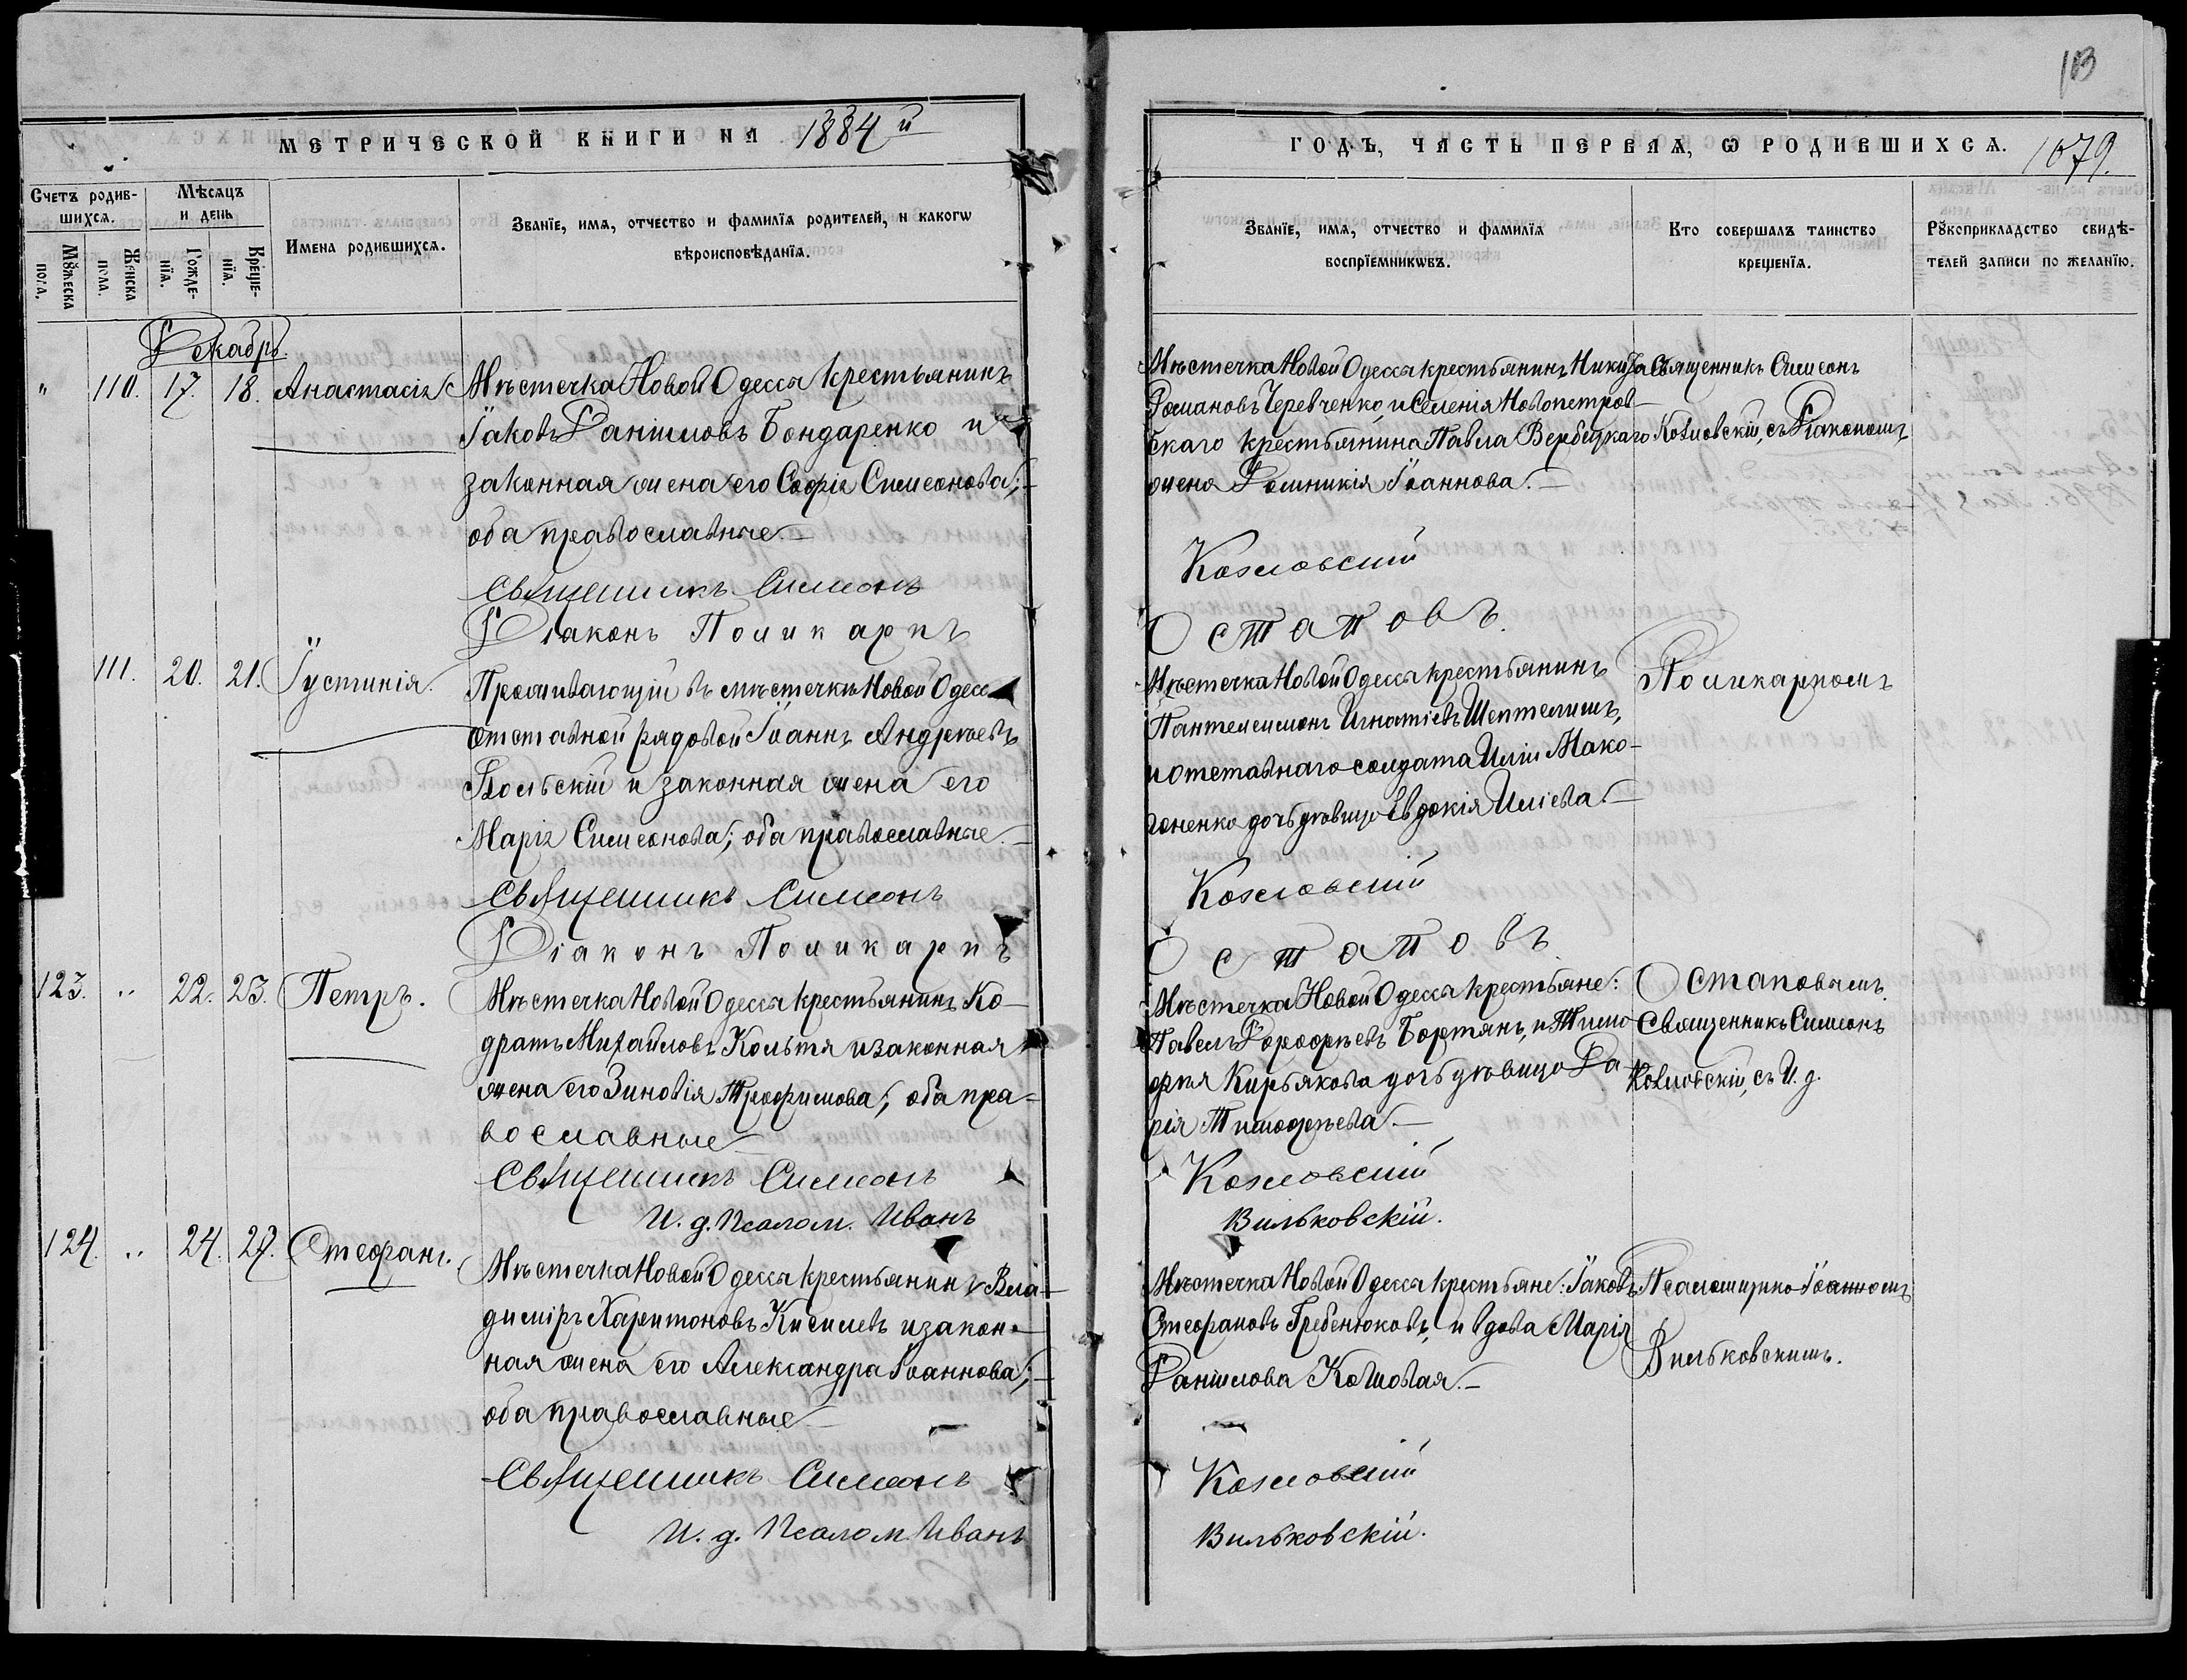 113
МЕТРИЧЕСКОЙ КНИГИ НА 1884 й
ГОДЪ, ЧАСТЬ ПЕРВАЯ, Ѡ РОДИВШИХСѦ. 1079.
Счетъ родив-
шихсѧ.
Мѣсѧцъ
и день
Мꙋжеска
пола.
Женска
пола.
Рожде-
нїѧ.
Креще-
нїѧ.
Имена родившихсѧ.
Званїе, имѧ, отчество и фамилїѧ родителей, и какогѡ
вѣроисповѣданїѧ.
Званїе, имѧ, отчество и фамилїѧ
воспрїемникѡвъ.
Кто совершалъ таинство
крещенїѧ.
Рꙋкоприкладство свидѣ-
телей записи по желанїю.
Декабрь.
" 110. 17. 18. Анастасія
Мѣстечка Новой Одессы крестьянинъ
Іаковъ Даніиловъ Бондаренко и
законная жена его Софія Симеонова;
оба православные.
Священникъ Симеонъ
Діаконъ Поликарпъ
Мѣстечка Новой Одессы крестьянинъ Никита
Романовъ Черевченко, и селенія Новопетров-
скаго крестьянина Павла Вербецкаго
жена Домникія Іоаннова.
Козловскій
Остаповъ.
Священникъ Симеонъ
Козловскій, съ Діакономъ
111. 20. 21. Іустинія.
Проживающій въ мѣстечкѣ Новой Одессѣ
отставной рядовой Іоаннъ Андреевъ
Польскій и законная жена его
Марія Симеонова; оба православные.
Священникъ Симеонъ
Діаконъ Поликарпъ
Мѣстечка Новой Одессы крестьянинъ
Пантелеимонъ Игнатіевъ Шептелишъ,
и отставнаго солдата Иліи Мако-
гоненко дочь дѣвица Евдокія Иліева.
Козловскій
Остаповъ.
Поликарпомъ
123. " 22. 23. Петръ.
Мѣстечка Новой Одессы крестьянинъ Ко-
дратъ Михайловъ Кольтя и законная
жена его Зиновія Трофимова; оба пра-
вославные
Священникъ Симеонъ
И. д. Псалом. Иванъ
Мѣстечка Новой Одессы крестьяне:
Павелъ Дорофеевъ Бортянъ, и Тимо-
фея Кирьякова дочь дѣвица Да-
рія Тимофеева.
Козловскій
Вильковскій.
Остаповымъ.
Священникъ Симеонъ
Козловскій, съ И. д.
124. " 24. 27. Стефанъ.
Мѣстечка Новой Одессы крестьянинъ Вла-
диміръ Харитоновъ Киселевъ и закон-
ная жена его Александра Іоаннова;
оба православные
Священникъ Симеонъ
И. д. Псалом. Иванъ
Мѣстечка Новой Одессы крестьяне: Іаковъ
Стефановъ Гребенюковъ, и вдова Марія
Даніилова Козловая.
Козловскій
Вильковскій.
Псаломщика Іоанномъ
Вильковскимъ.